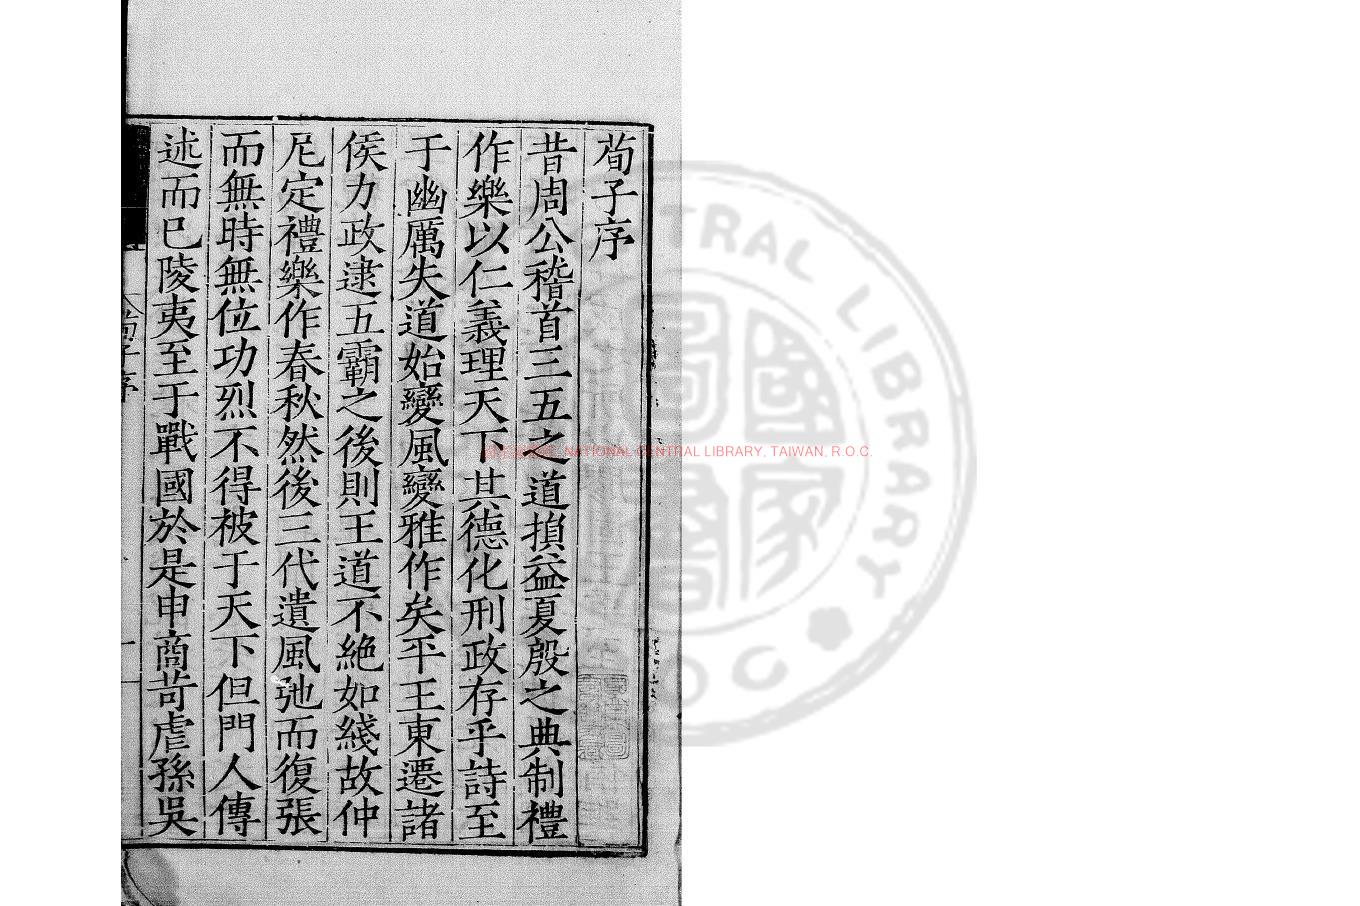 荀子序
昔周公稽首三五之道損益夏殷之典制禮
作樂以仁義理天下其德化刑政存乎詩至
于幽厲失道始變風變雅作矣平王東遷諸
侯力政逮五霸之後則王道不絶如綫故仲
尼定禮樂作春秋然後三代遺風弛而復張
而無時無位功烈不得被于天下但門人傳
述而已陵夷至于戰國於是申商苛虐孫吳
荀子序
一
NATIONAL CENTRAL LIBRARY, TAIWAN, R.O.C.